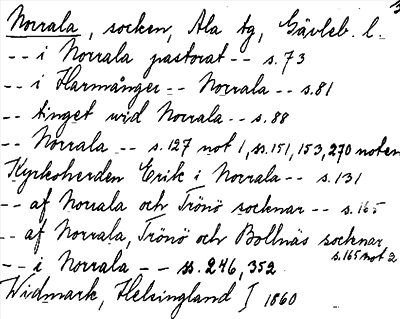 Norrala, socken, Ala tg, Gävleb. l.
-- i Norrala pastorat -- s. 73
-- i Harmånger -- Norrala -- s. 81
-- tinget wid Norrala -- s. 88
-- Norrala -- s. 127 not 1, ss. 151, 153, 270 noten
Kyrkoherden Erik i Norrala -- s. 131
-- af Norrala och Trönö socknar -- s. 165
-- af Norrala, Trönö och Bollnäs socknar
s. 165 not 2
-- i Norrala -- ss. 246, 352
Widmark, Helsingland I 1860